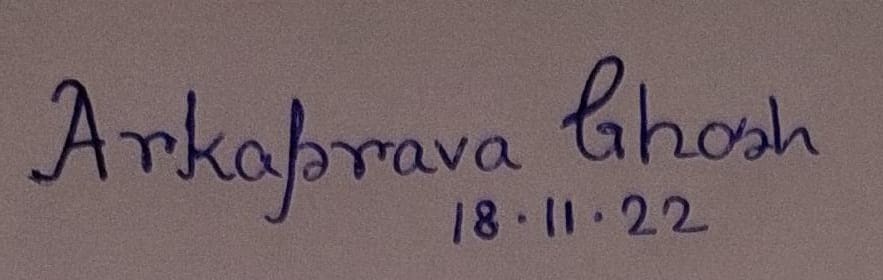 Arkaprava Ghosh
18.11.22